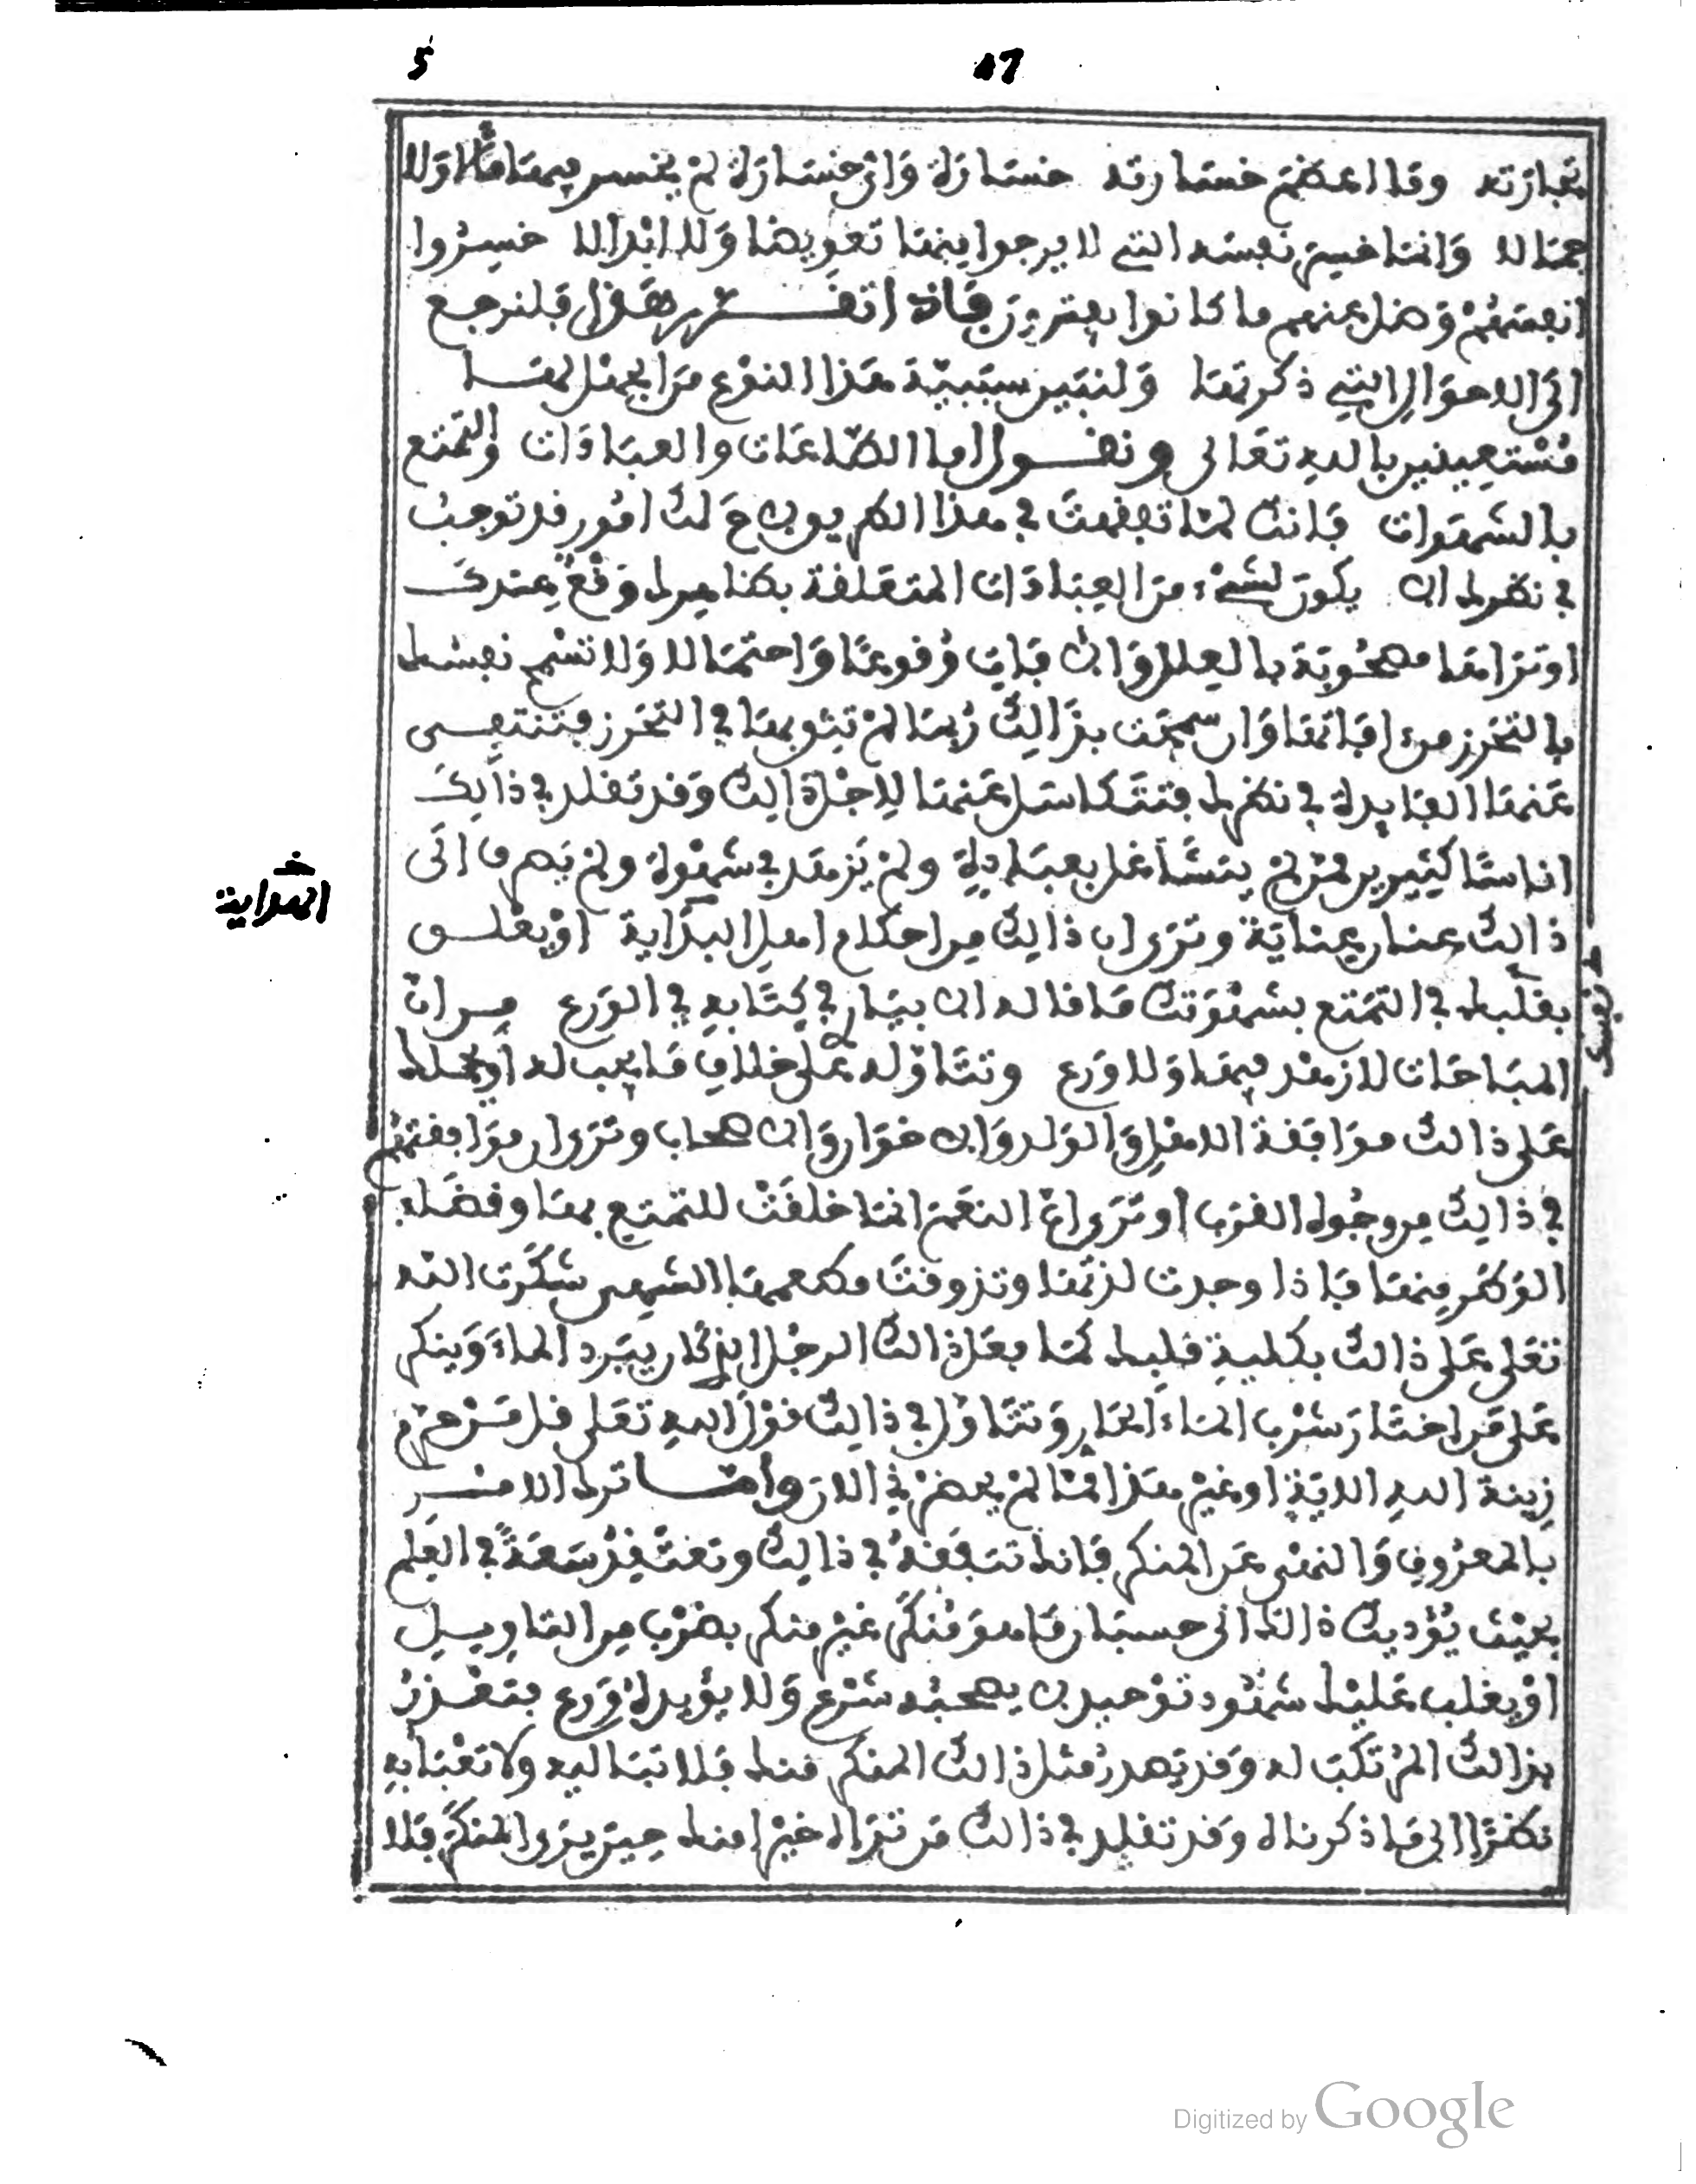 5
17
تجارته وما اعظم خسارته خسارة واي خسارة لم يخسر فيها مالا ولا
جمالا وانما خسر نفسه التي لا يرجوا فيها تعويضا ولا ابدالا خسروا
انفسهم وضل عنهم ما كانوا يفترون فاذا تقرر هذا فلنرجع
الى الاحوال التي ذكرتها ولنبين سببية هذا النوع من الجهل لها
مستعينين بالله تعالى ونقول اما الطاعات والعبادات والتمتع
بالشهوات فانك لما تفقهت في هذا الطريق لك امور قد توجب
في نظرك ان يكون لشيء من العبادات المتعلقة بظاهرك وقع عندك
او تراها مصحوبة بالعلل وان فات وقوعا واحتمالا ولا تسمح نفسك
بالتحرز من افاتها وان سمحت بذالك ربما لم تثو بها في التحرز فتنتفي
عنها الفايدة في نظرك فتتكاسل عنها لاجل ذالك وقد تقلد في ذالك
اناسا كثيرين لم يتشاغل بعبادة ولم يزهد في شهوة ولم يصرف الى
ذالك عنان عناية وترى ان ذالك من احكام اهل البداية او يعلق
بقلبك في التمتع بشهوتك ما قاله ان بيان في كتابه في الورع من ان
المباحات لا زهد فيها ولا ورع وتتاوله على خلاف ما يجب له او يحملك
على ذالك موافقة الاهل والولد والاخوان والاصحاب وترى ان موافقتهم
في ذالك من وجوه القرب او ترى ان النعم انما خلقت للتمتع بها وقضاء
الوطر منها فاذا وجدت لذتها وتذوقت مطعمها الشهي شكرت الله
تعلى على ذالك بكلية قلبك كما فعل ذالك الرجل الذي كان يبرد الماء وينكر
على من اختار شرب الماء الحار وتتاول في ذالك قول الله تعلى قل من حرم
زينة الله الاية او غير هذا مما لم يحضرني الان واما ترك الامر
بالمعروف والنهي عن المنكر فانك تتفقه في ذالك وتعتقد سعة في العلم
بحيث يؤديك ذالك الى حسبان ما هو منكر غير منكر بضرب من التاويل
او يغلب عليك شهود توحيد لا يصحبه شرع ولا يؤيده ورع فتعذر
بذالك المرتكب له وقد يصدر مثل ذالك المنكر منك فلا تباليه ولا تعبا به
نظرا الى ما ذكرناه وقد تقلد في ذالك من تراه خيرا منك حين يرى المنكر فلا
Digitized by Google